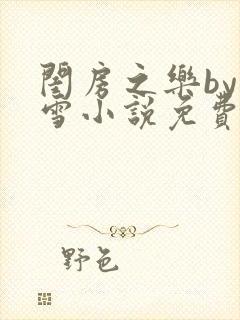 閨房之樂by
雪小說免費
野色